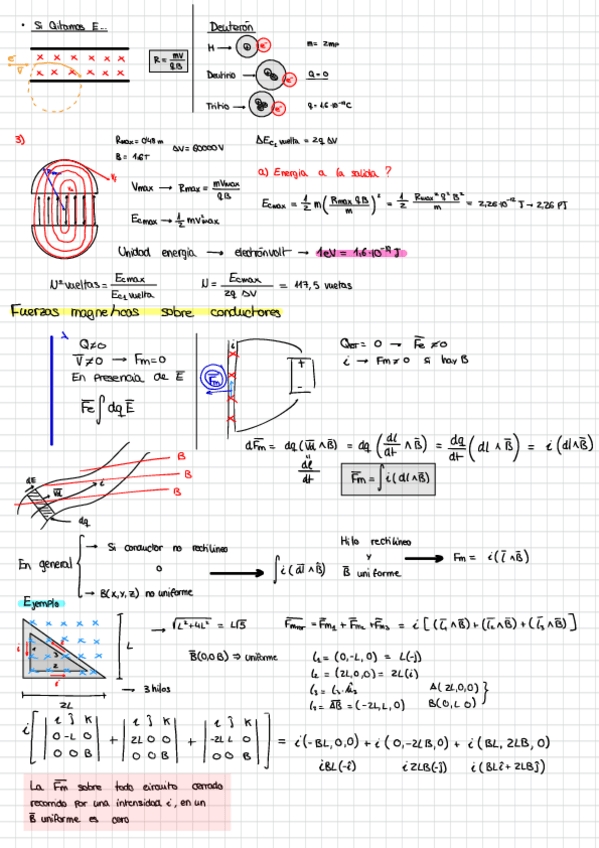 • Si Qitamos E...
e⁻
V
R = mV/qB
Deuterón
H → e⁻
m = 2mp
Deutirio → e⁻
Q = 0
Tritio → e⁻
q = 1,6·10⁻¹⁹C
3)
Rmax = 0'48 m
B = 1.6T
ΔV = 60000 V
ΔEc, vuelta = 2q ΔV
Vmax → Rmax = mVmax/qB
a) Energia a la salida?
Ecmax = 1/2 m (Rmax qB/m)² = 1/2 Rmax² q² B²/m = 2,26·10⁻¹² J → 2,26 PJ
Ecmax → 1/2 mv²max
Unidad energia → electrónvolt → 1eV = 1,6·10⁻¹⁹ J
Nº vueltas = Ecmax/Ec1 vuelta
N = Ecmax/2q ΔV = 117,5 vuetas
Fuerzas magneticas sobre conductores
λ
Q≠0
V̅≠0 → Fm=0
En presencia de E
F̅e ∫ dq E̅
i
F̅m
+
-
Q = 0 → F̅e ≠0
i → Fm≠0 si hay B
dF̅m = dq (V̅d ∧ B̅) = dq (dl/dt ∧ B̅) = dq/dt (dl ∧ B̅) = i (dl∧B̅)
dl̅/dt
F̅m = ∫ i (dl∧B̅)
B
B
B
i
dq
En general
→ Si conductor no rectilíneo
o
→ B(x,y,z) no uniforme
→ ∫ i (dl̅ ∧ B̅)
Hilo rectilíneo
y
B̅ uniforme
→ Fm = i(l̅ ∧ B̅)
Ejemplo
1
2
3
i
L
2L
→ √L²+4L² = L√5
B̅(0,0B) ⇒ uniforme
→ 3 hilos
= F̅m1 + F̅m2 + F̅m3 = i [(l̅1∧B̅)+(l̅2∧B̅)+(l̅3∧B̅)]
l1 = (0,-L,0) = L(-j)
l2 = (2L,0,0) = 2L(i)
l3 = AB̅ = (-2L,L,0)
A(2L,0,0)
B(0,L,0)
i [ |i j K; 0 -L 0; 0 0 B| + |i j K; 2L 0 0; 0 0 B| + |i j K; -2L L 0; 0 0 B| ] = i(-BL,0,0) + i(0,-2LB,0) + i(BL,2LB,0)
iBL(-i)   i2LB(-j)   i(BLi+2LBj)
La F̅m sobre todo circuito cerrado
recorrido por una intensidad i, en un
B̅ uniforme es cero